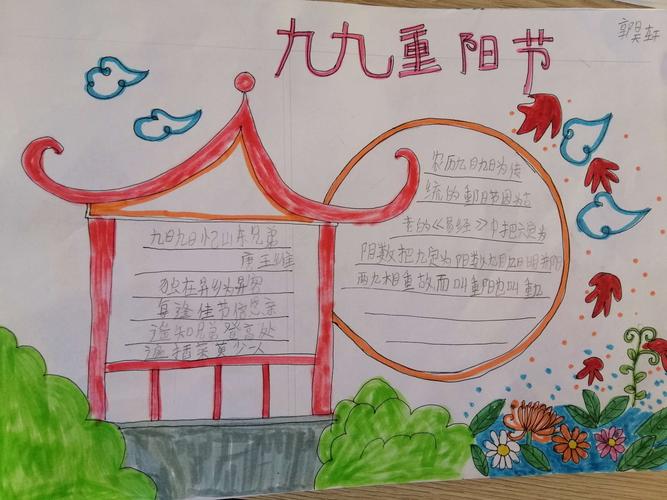 九九重阳节
郭昊轩
九月九日忆山东兄弟
唐王维
独在异乡为异客
每逢佳节倍思亲
遥知兄弟登高处
遍插茱萸少一人
农历九月九日为传
统的重阳节因为古
老的《易经》中把六定为
阴数把九定为阳数九月九日日月并阳
两九相重故而叫重阳也叫重九